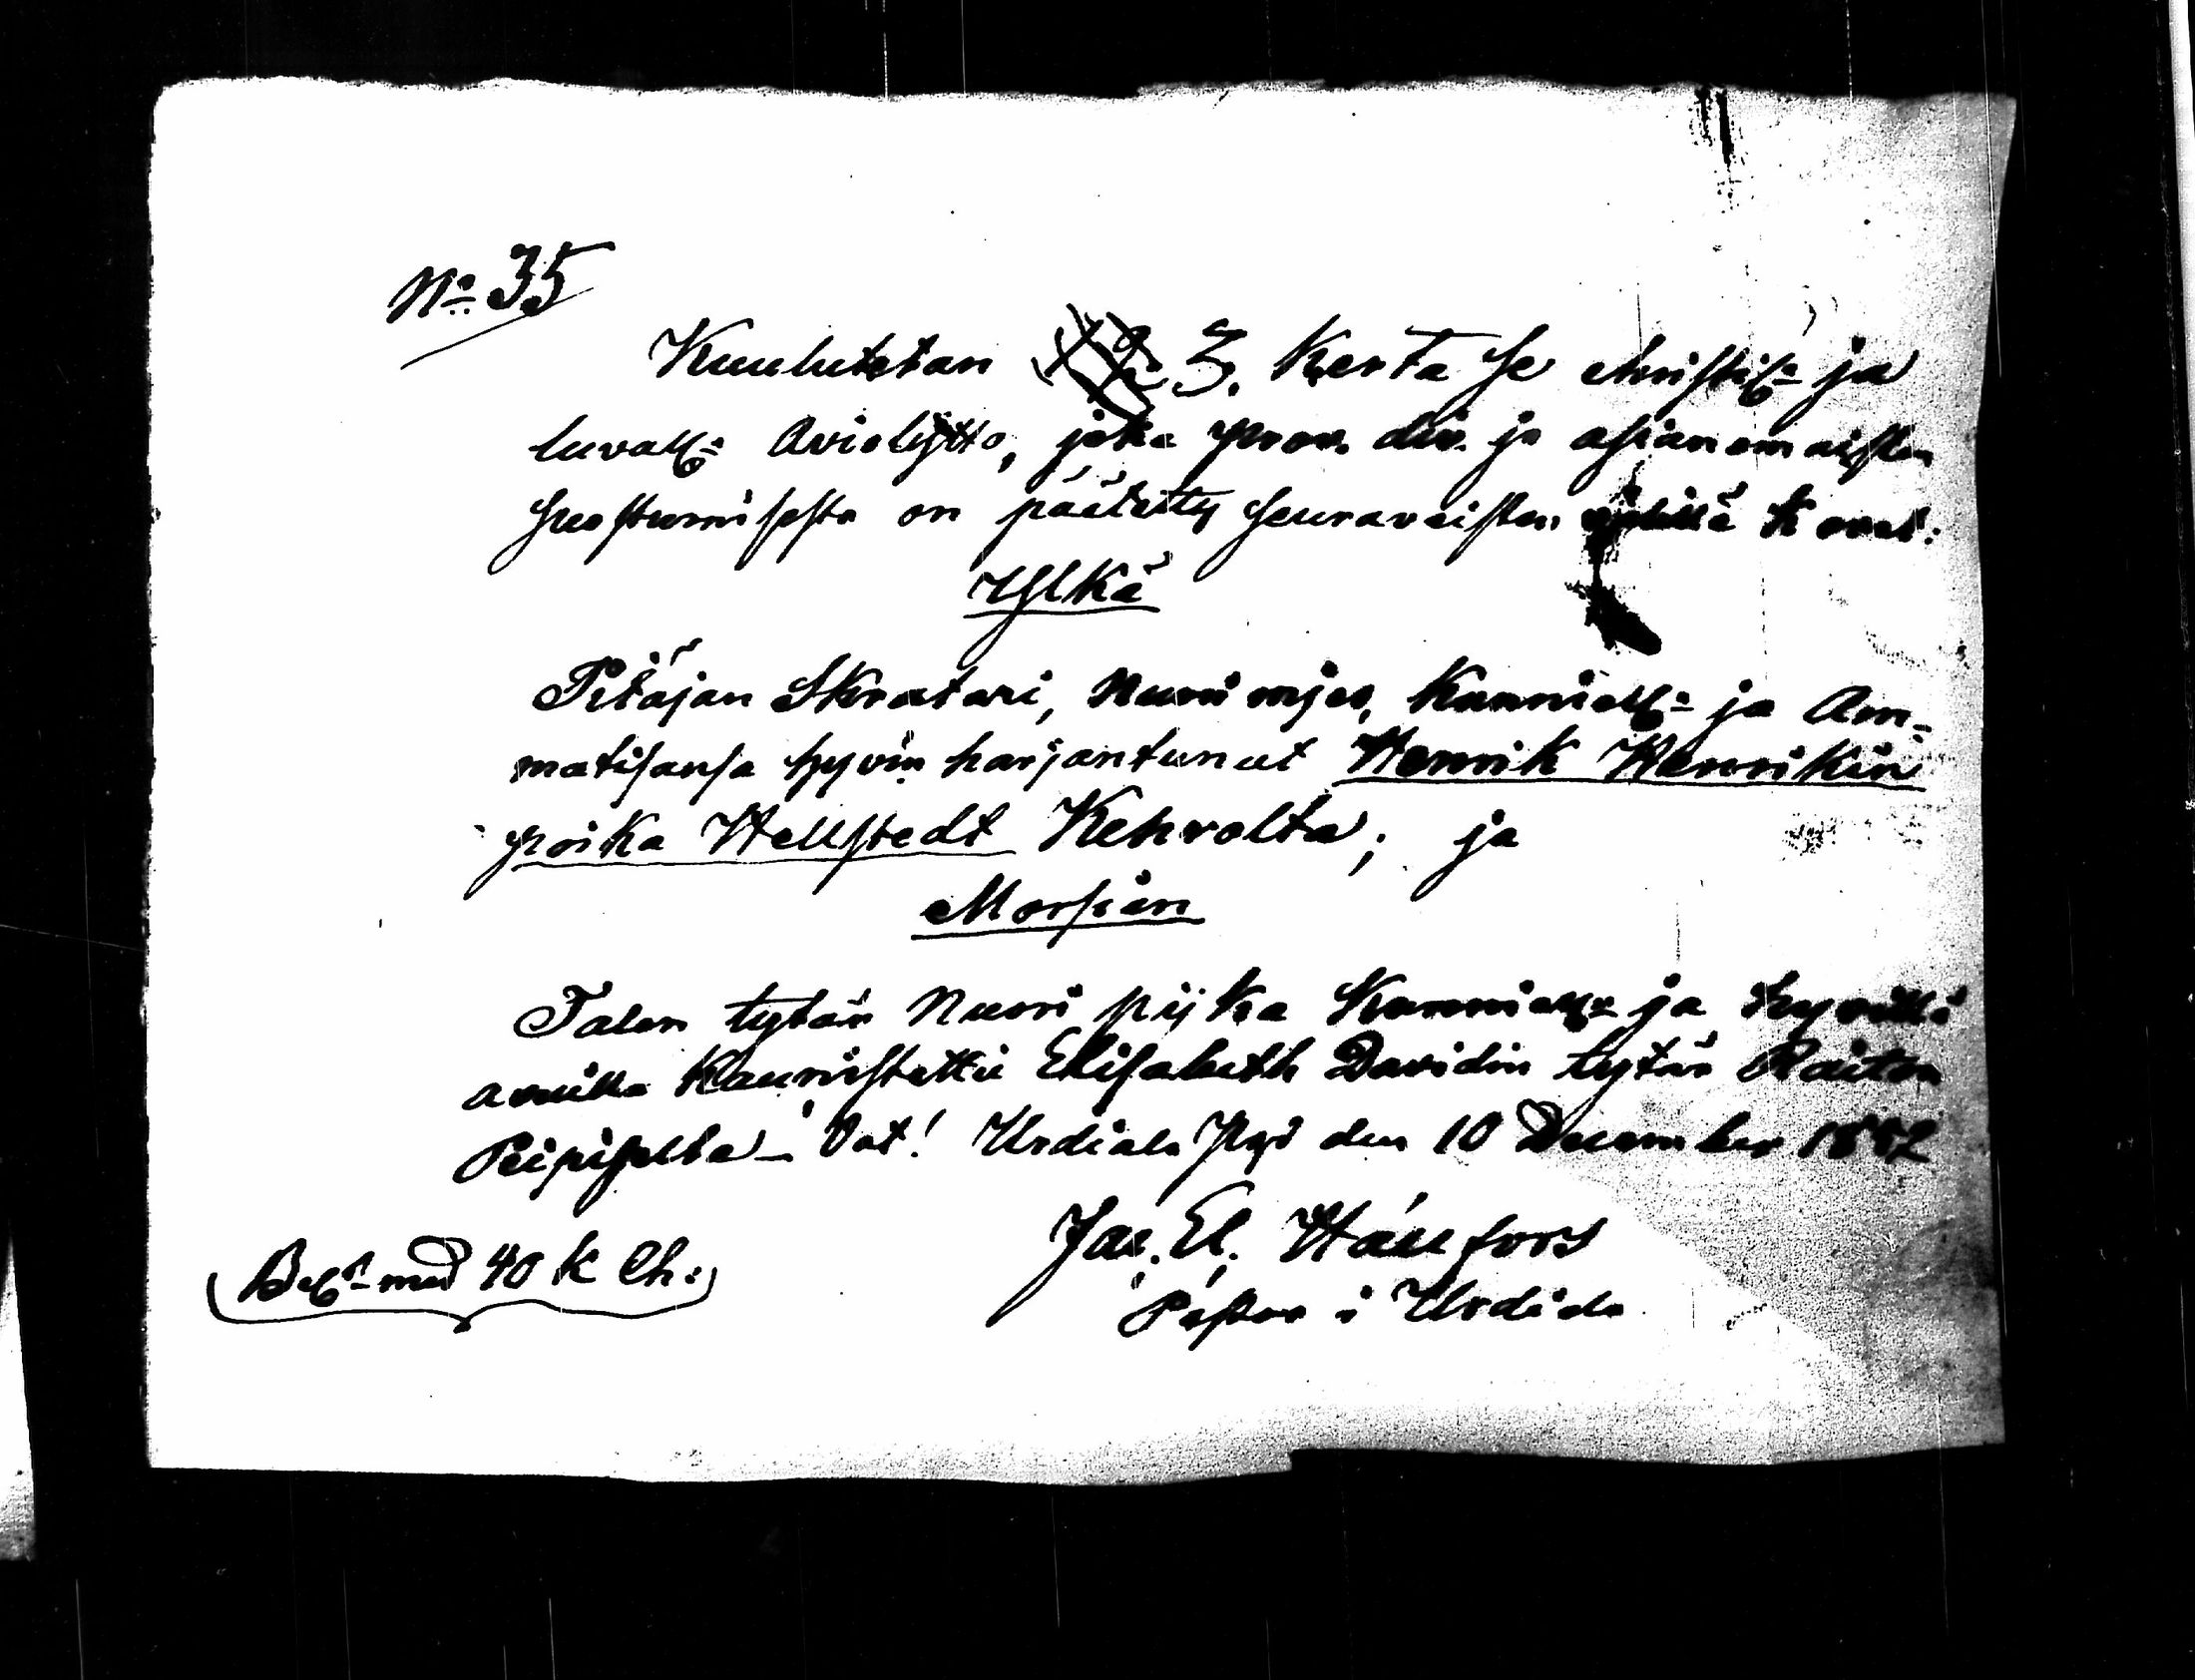 No: 35
Kuulutetan 3. Kerta se christil:n ja
luvall:n Avioliytto, joka prov. div. ja asianomaisten
suostumisesta on päätetty seuravaisten välillä
Yljkä
Pitäjän Skratari, Nuori mjes, Kunniall:n ja Am-
matisansa hyvin harjantunut Henrik Henrikin
poika Hellstedt Kehrolta; ja
Morsian
Talon tytär Nuori pijka Kunniall:n ja hyvillä
avuilla Kaunistettu Elisabeth Davidin tytär Raiton
Peipiseltä – Vat! Urdiala Pgd den 10 December 1882
Jac. El. Hällfors
Pastor i Urdiala
Bex:t med 40 K Ch: